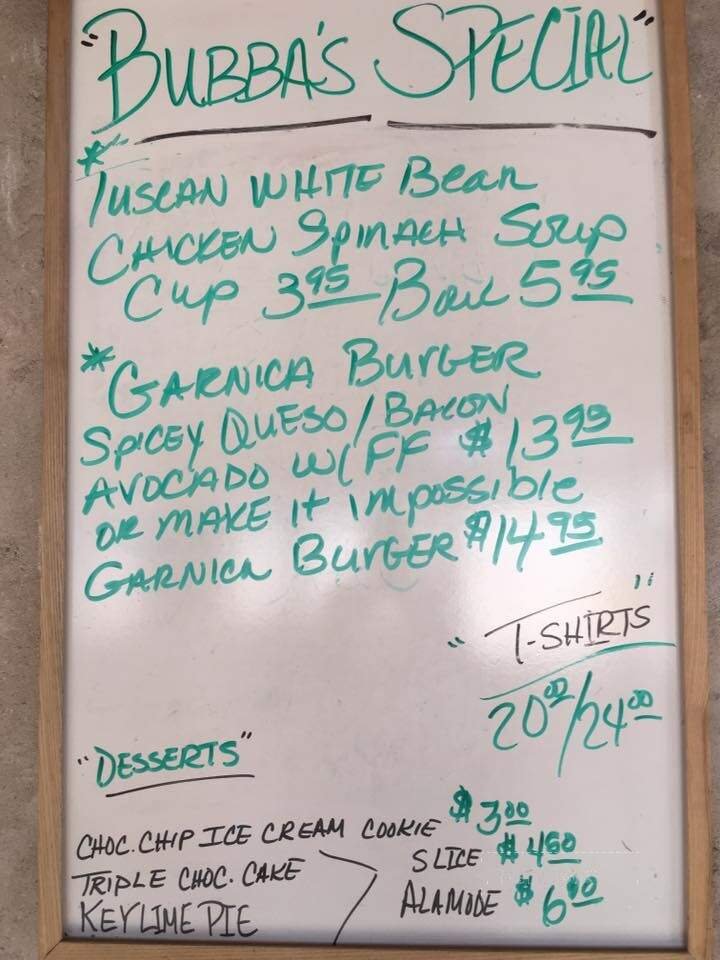 "BUBBA'S SPECIAL"
* TUSCAN WHITE Bean
CHICKEN SPINACH Soup
Cup 3 95 Bowl 5 95
* GARNICA BURGER
SPICEY QUESO / BACON
AVOCADO W/ FF $13 95
OR MAKE It impossible
GARNICA BURGER $14 95
"T-SHIRTS"
20 00/24 00
"DESSERTS"
CHOC. CHIP ICE CREAM COOKIE $3 00
TRIPLE CHOC. CAKE SLICE $4 50
KEYLIME PIE ALAMODE $6 00